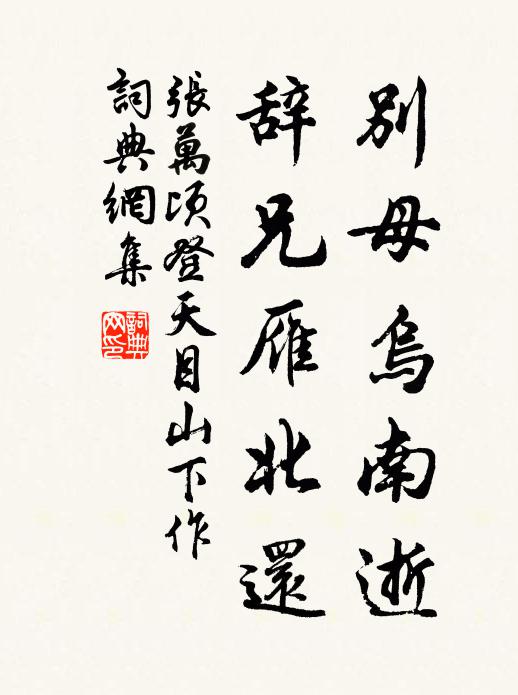 別母烏南逝
辞兄雁北還
張萬頃登天目山下作
詞典網集
詞典网印